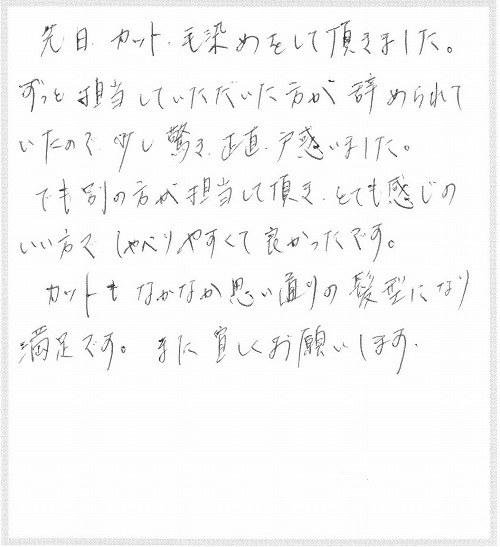 先日、カット、毛染めをして頂きました。
ずっと担当していただいた方が辞められて
いたので、少し驚き、正直、戸惑いました。
でも別の方が担当して頂き、とても感じの
いい方で しゃべりやすくて良かったです。
カットも なかなか思い通りの髪型になり
満足です。また宜しくお願いします。